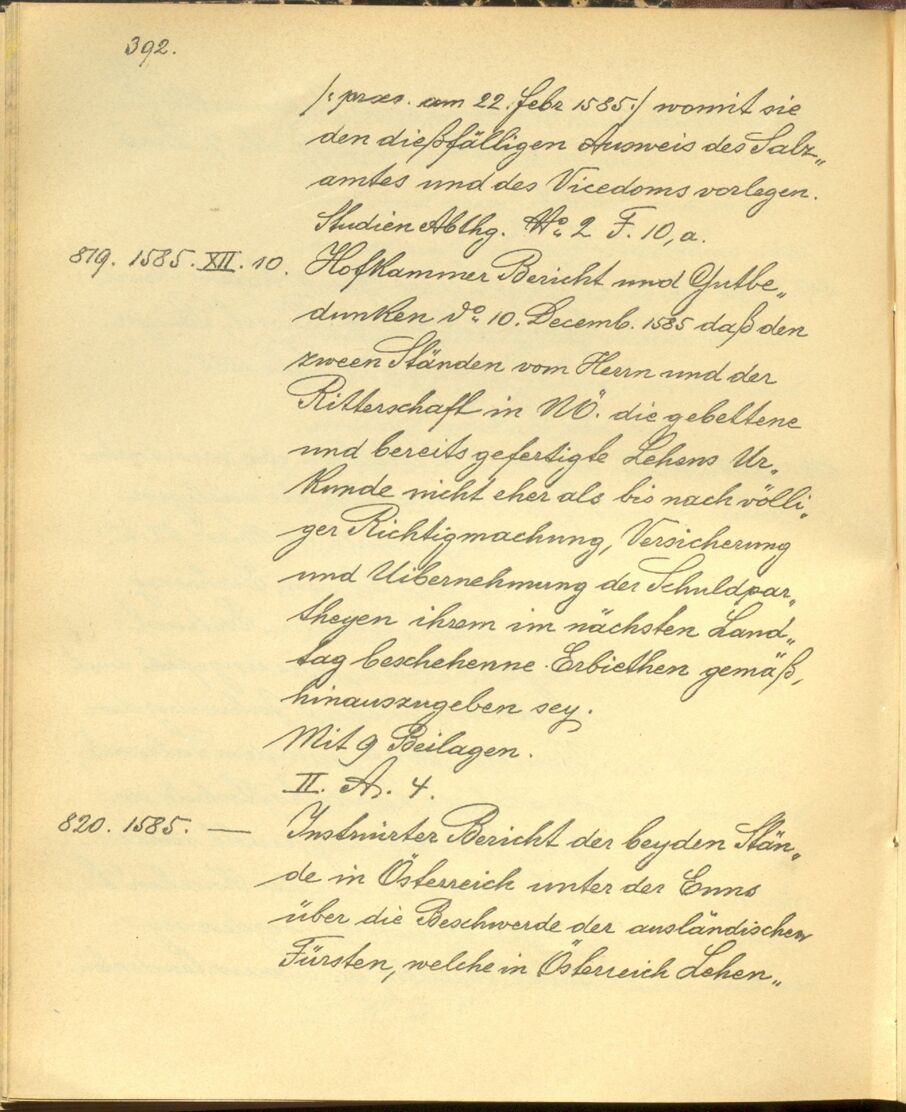 392.
/: præs. am 22. Febr 1585:/ womit sie
den dießfälligen Ausweis des Salz„
amtes und des Vicedoms vorlegen.
Studien Abthg. No 2 F. 10, a.
819. 1585. XII. 10. Hofkammer Bericht und Gutbe„
dunken do 10. Decemb. 1585 daß den
zween Ständen vom Herrn und der
Ritterschaft in NÖ. die gebettene
und bereits gefertigte Lehens Ur„
kunde nicht eher als bis nach völli„
ger Richtigmachung, Versicherung
und Uibernehmung der Schuldpar„
theyen ihrem im nächsten Land„
tag beschehenne Erbiethen gemäß,
hinauszugeben sey.
Mit 9 Beilagen.
II. A. 4.
820. 1585. — Instruirter Bericht der beyden Stän„
de in Österreich unter der Enns
über die Beschwerde der ausländischen
Fürsten, welche in Österreich Lehen„